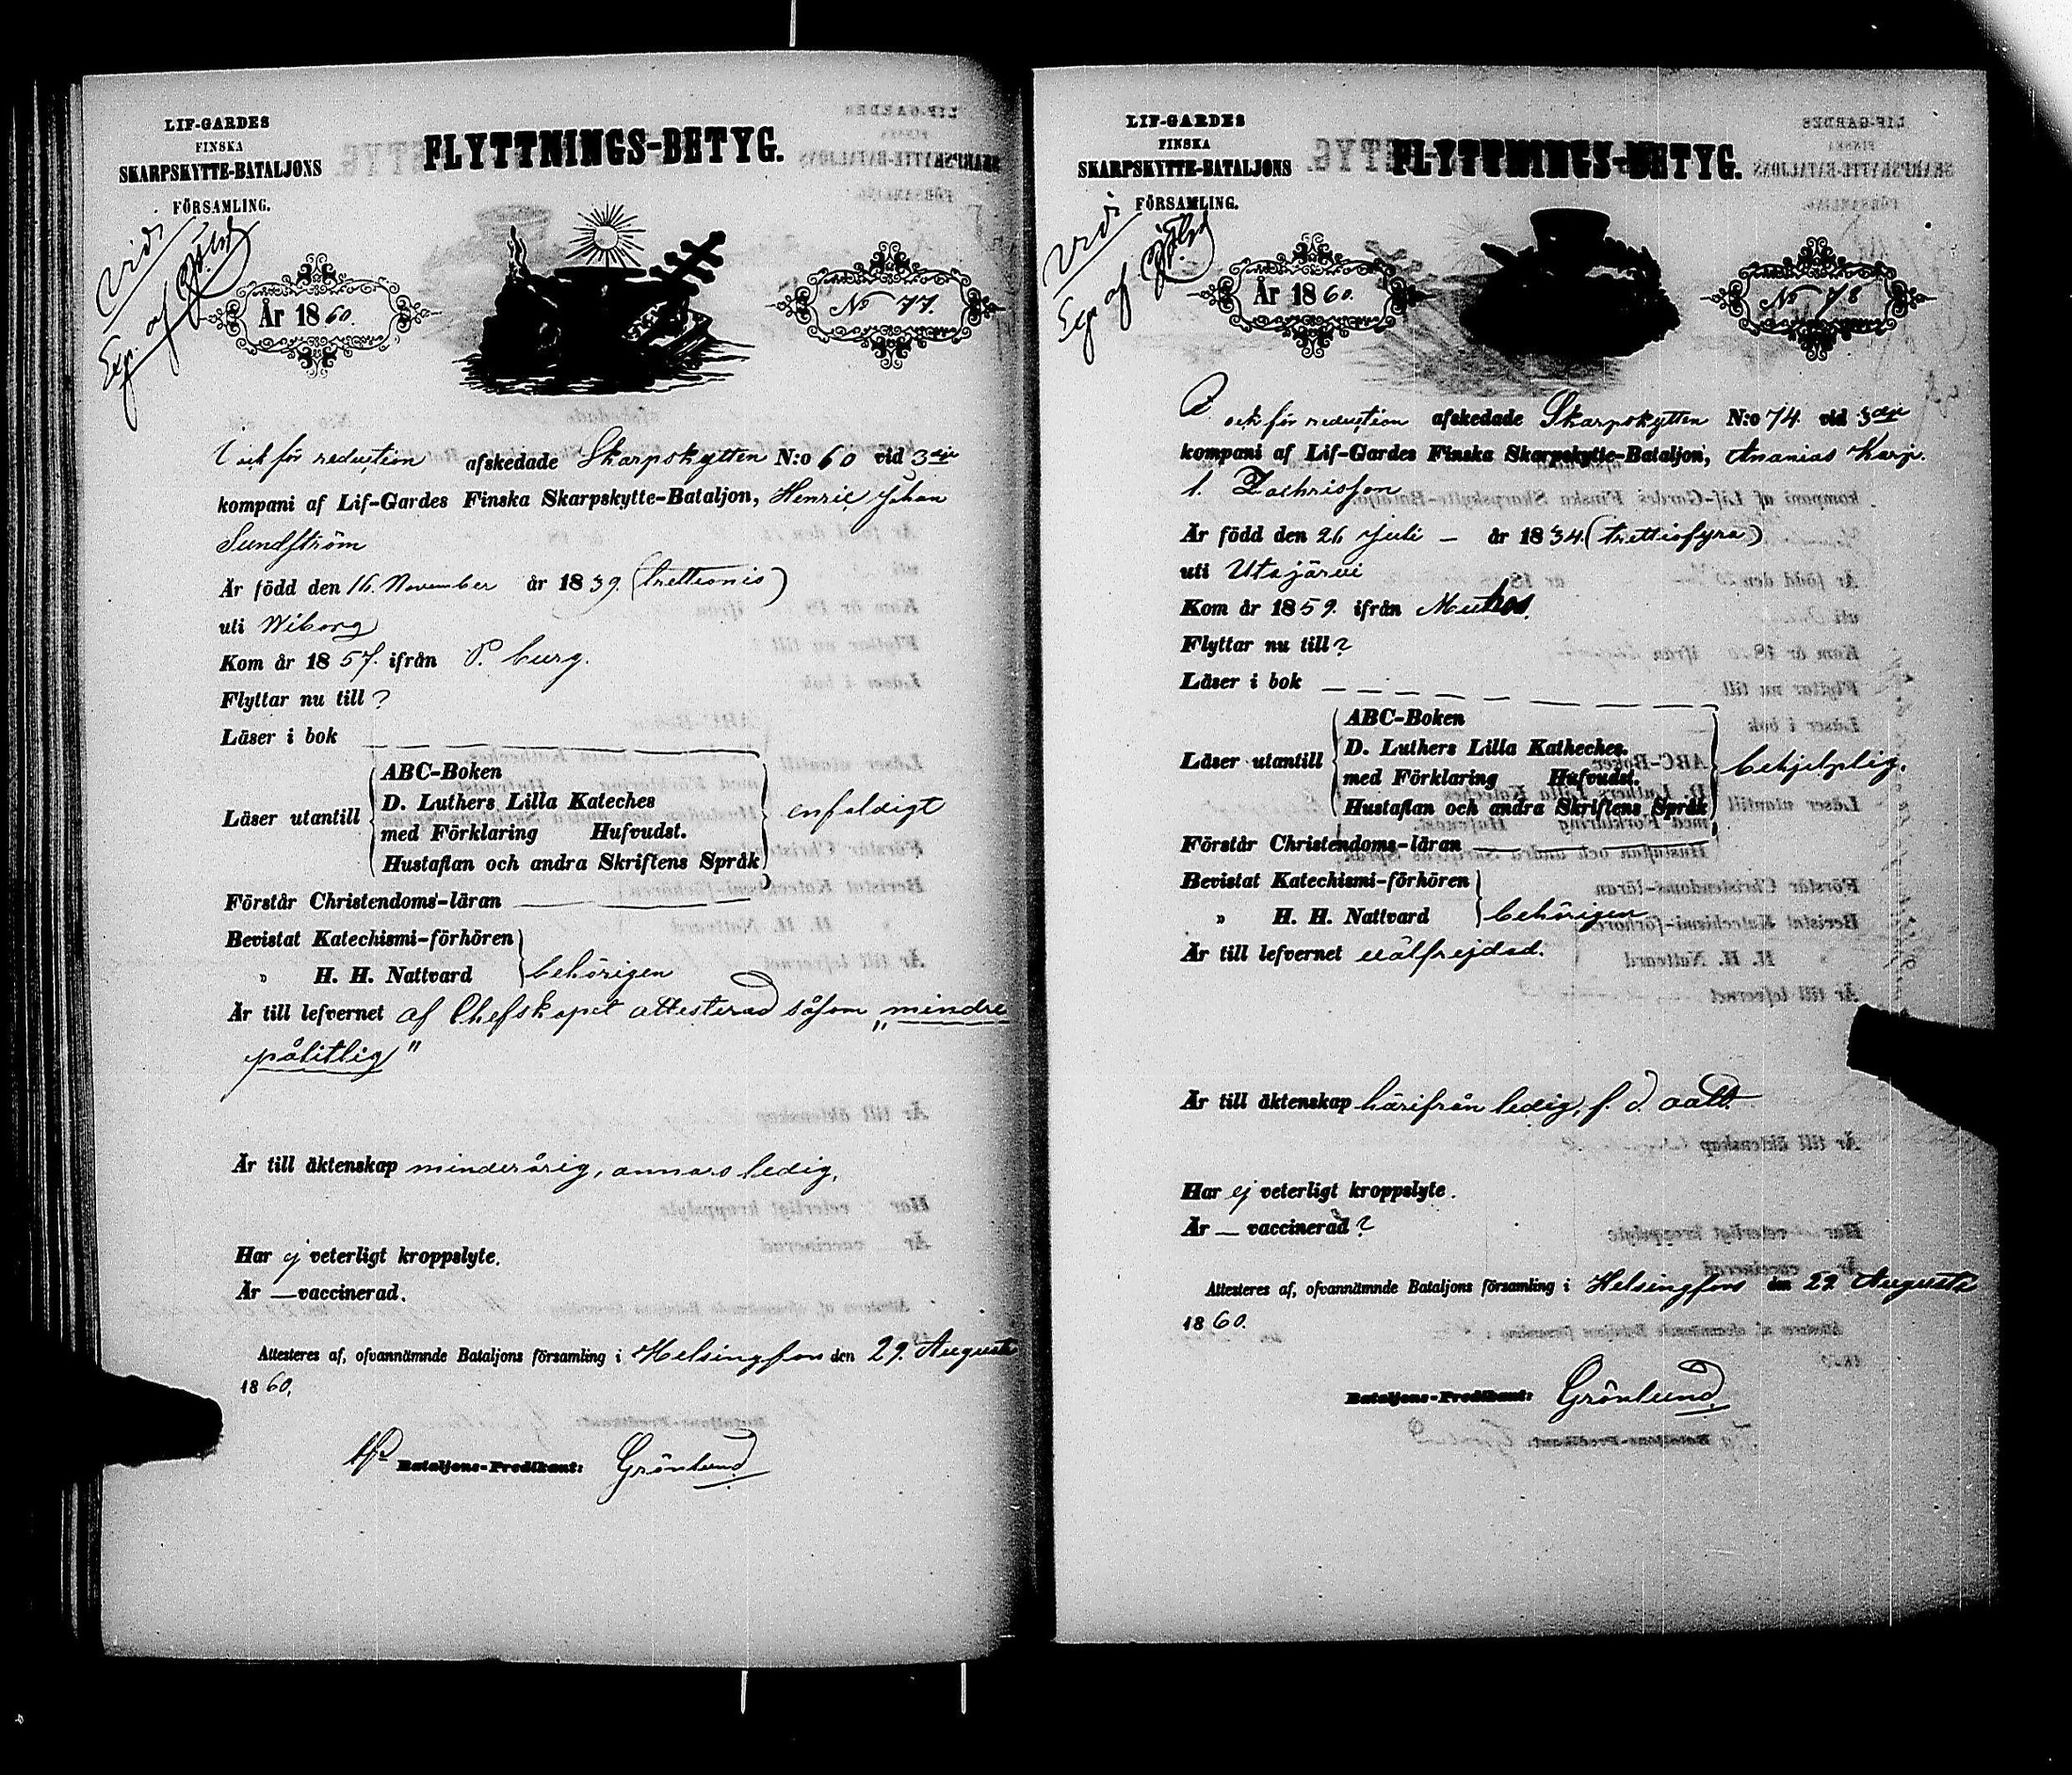 LIF-GARDES
FINSKA
SKARPSKYTTE-BATALJONS
FÖRSAMLING.
FLYTTNINGS-BETYG.
Vidi
Exp. af
År 1860.
No 77.
och för reduction afskedade Skarpskytten N:o 60 vid 3dje
kompani af Lif-Gardes Finska Skarpskytte-Bataljon, Henric Johan
Sundström
Är född den 16. November år 1839. (trettionio)
uti Wiborg
Kom år 1857. ifrån P. burg.
Flyttar nu till ?
Läser i bok
Läser utantill
ABC-Boken
D. Luthers Lilla Kateches
med Förklaring Hufvudst.
Hustaflan och andra Skriftens Språk
enfaldigt
Förstår Christendoms-läran
Bevistat Katechismi-förhören
" H. H. Nattvard
behörigen
Är till lefvernet af Chefskapet attesterad såsom "mindre
pålitlig"
Är till äktenskap minderårig, annars ledig.
Har ej veterligt kroppslyte.
Är — vaccinerad.
Attesteres af, ofvannämnde Bataljons församling i Helsingfors den 29. Augusti
1860.
Bataljons-Predikant: Grönlund
LIF-GARDES
FINSKA
SKARPSKYTTE-BATALJONS
FÖRSAMLING.
FLYTTNINGS-BETYG.
Vidi
Exp. af
År 1860.
No 78
och för reduction afskedade Skarpskytten N:o 74. vid 3dje
kompani af Lif-Gardes Finska Skarpskytte-Bataljon, Ananias Karp.
l. Zachrisson
Är född den 26 Juli — år 1834. (trettiofyra)
uti Utajärvi
Kom år 1859. ifrån Muhos.
Flyttar nu till ?
Läser i bok
Läser utantill
ABC-Boken
D. Luthers Lilla Katheches.
med Förklaring Hufvudst.
Hustaflan och andra Skriftens Språk
behjelplig.
Förstår Christendoms-läran
Bevistat Katechismi-förhören
" H. H. Nattvard
behörigen
Är till lefvernet välfrejdad.
Är till äktenskap härifrån ledig, f. d.
Har ej veterligt kroppslyte.
Är — vaccinerad ?
Attesteres af, ofvannämnde Bataljons församling i Helsingfors den 29. Augusti
1860.
Bataljons-Predikant: Grönlund